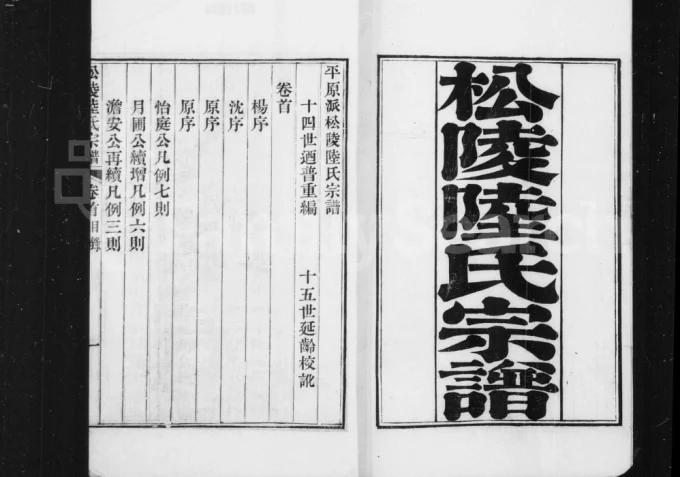 松陵陸氏宗譜
平原派松陵陸氏宗譜
十四世迺普重編 十五世延齡校訛
卷首
楊序
沈序
原序
原序
怡庭公凡例七則
月圃公續增凡例六則
澹安公再續凡例三則
松陵陸氏宗譜 卷首目錄 一